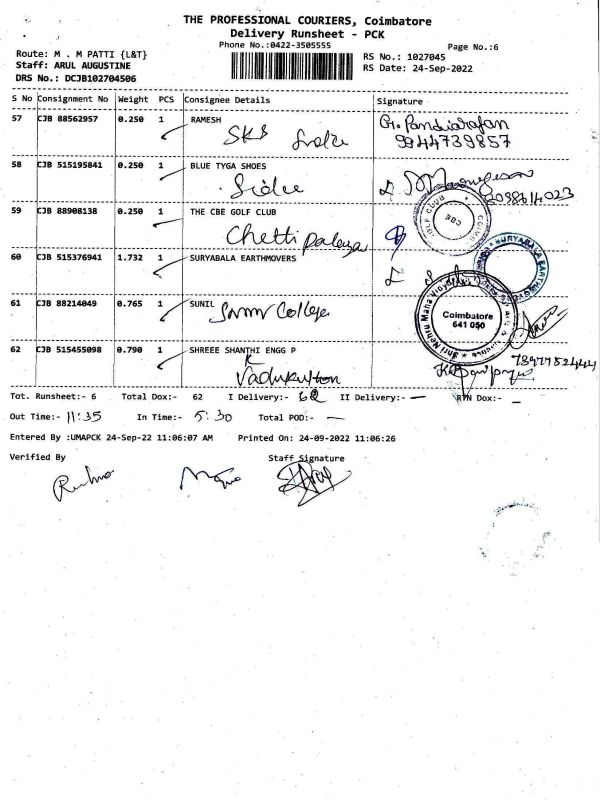 THE PROFESSIONAL COURIERS, Coimbatore
Delivery Runsheet - PCK
Phone No.:0422-3505555
Page No.:6
Route: M . M PATTI {L&T}
RS No.: 1027045
Staff: ARUL AUGUSTINE
RS Date: 24-Sep-2022
DRS No.: DCJB102704506
S No Consignment No Weight PCS Consignee Details Signature
57 CJB 88562957 0.250 1 RAMESH
9944739857
58 CJB 515195841 0.250 1 BLUE TYGA SHOES
Sidco
59 CJB 88908138 0.250 1 THE CBE GOLF CLUB
Chetti Palaya
GOLF CLUB
60 CJB 515376941 1.732 1 SURYABALA EARTHMOVERS
SURYABALA EARTH
61 CJB 88214049 0.765 1 SUNIL
College
Shri Nehru Maha
Coimbatore
641 050
62 CJB 515455098 0.790 1 SHREEE SHANTHI ENGG P
Tot. Runsheet:- 6 Total Dox:- 62 I Delivery:- 62 II Delivery:- — RTN Dox:- —
Out Time:- 11:35 In Time:- 5:30 Total POD:- —
Entered By :UMAPCK 24-Sep-22 11:06:07 AM Printed On: 24-09-2022 11:06:26
Verified By Staff Signature